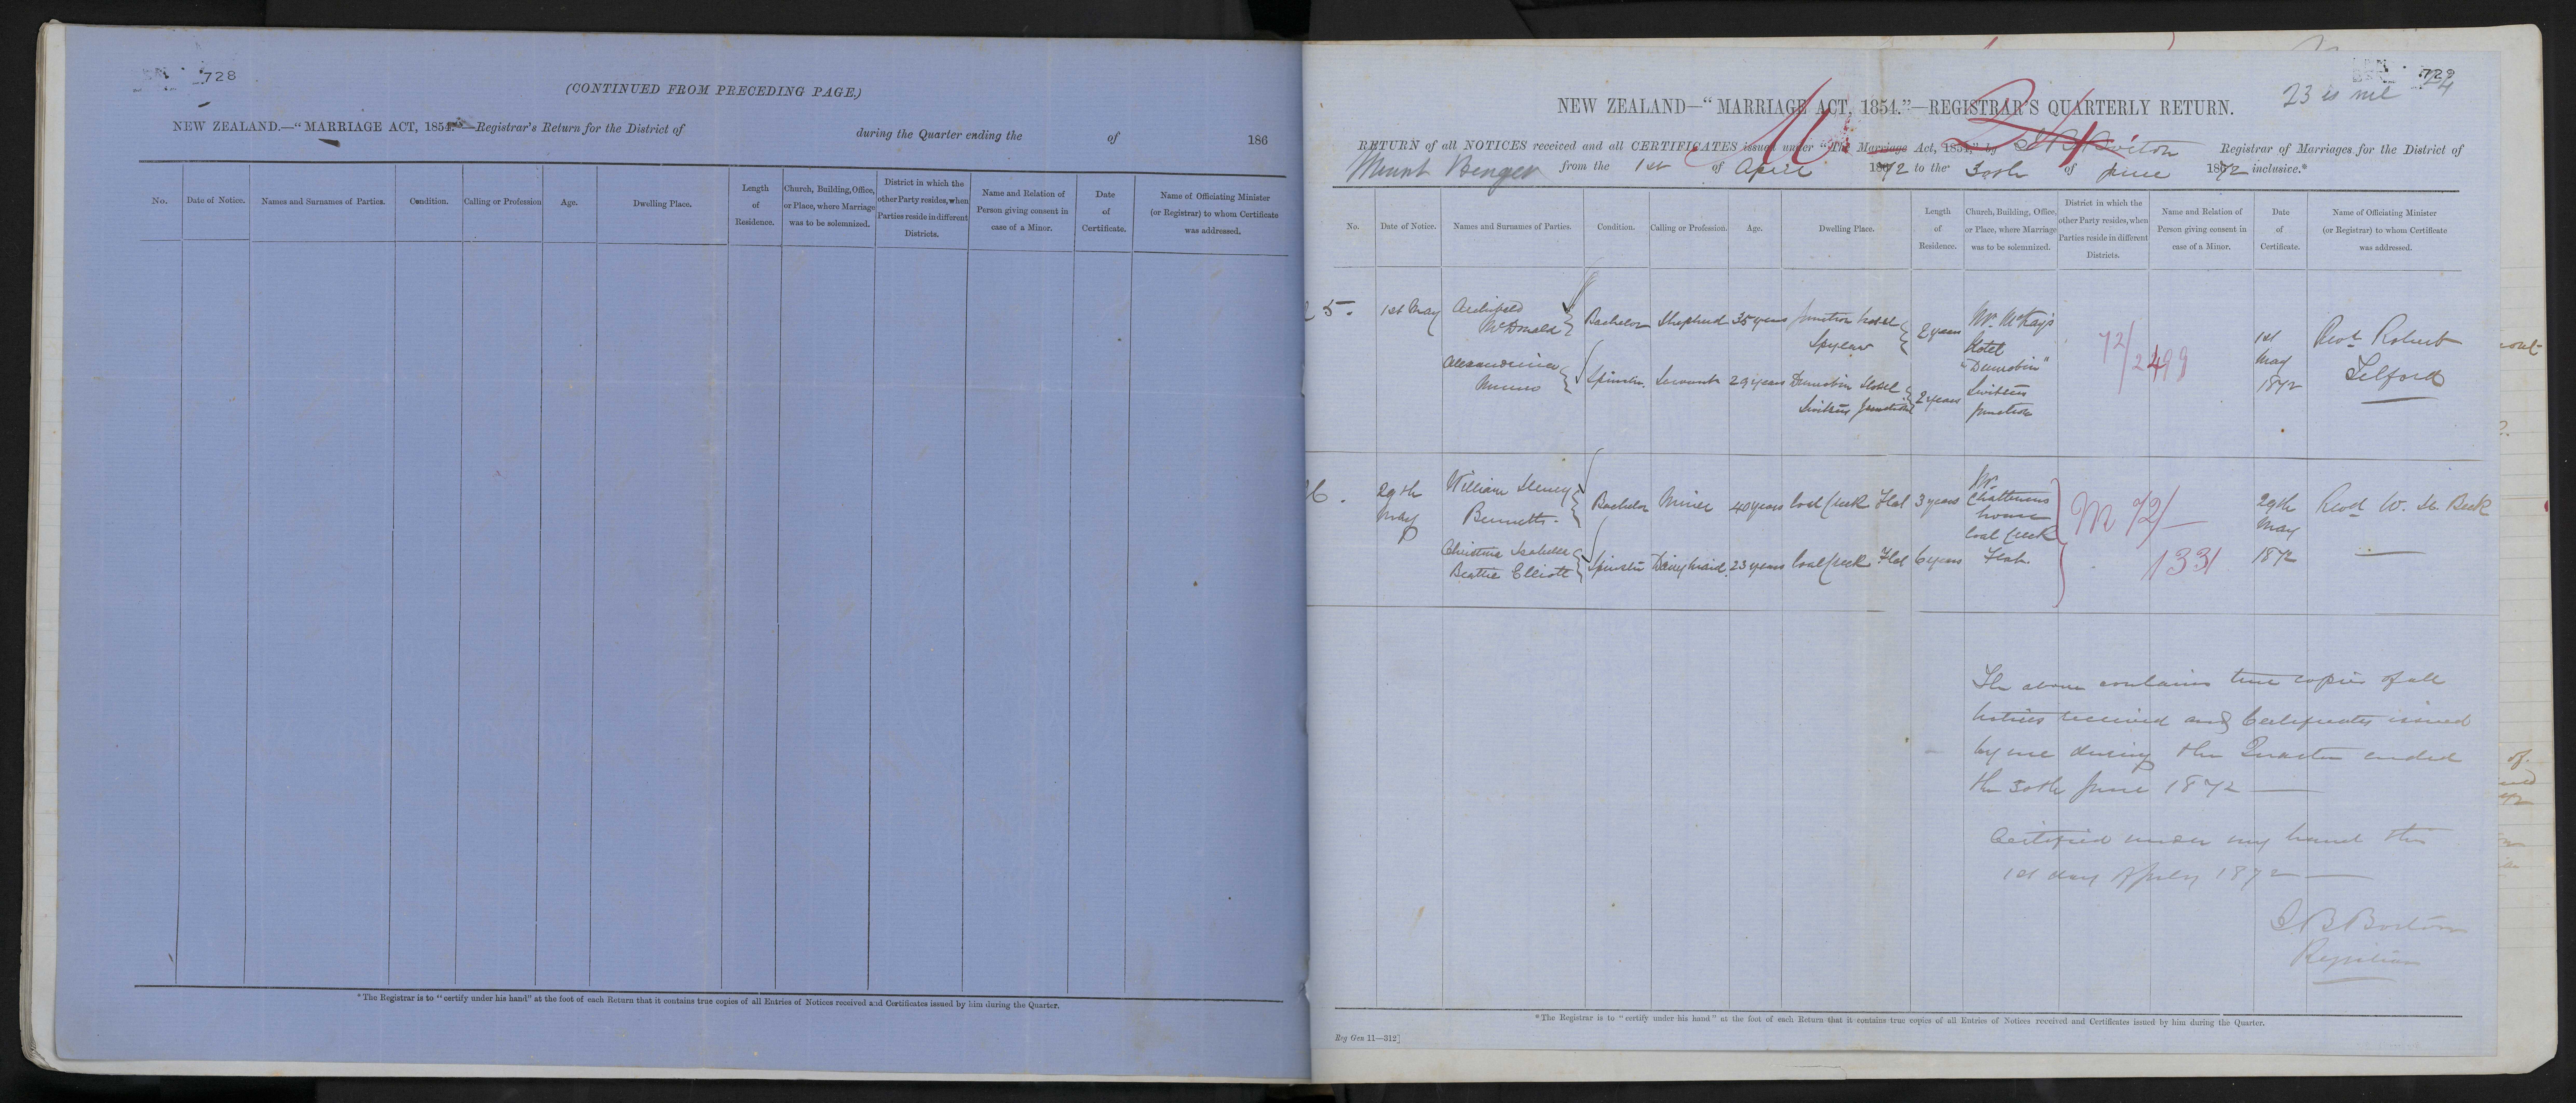 728
(CONTINUED FROM PRECEDING PAGE.)
NEW ZEALAND.—"MARRIAGE ACT, 1854."—Registrar's Return for the District of during the Quarter ending the of 186
No.
Date of Notice.
Names and Surnames of Parties.
Condition.
Calling or Profession
Age.
Dwelling Place.
Length
of
Residence.
Church, Building, Office,
or Place, where Marriage
was to be solemnized.
District in which the
other Party resides, when
Parties reside in different
Districts.
Name and Relation of
Person giving consent in
case of a Minor.
Date
of
Certificate.
Name of Officiating Minister
(or Registrar) to whom Certificate
was addressed.
*The Registrar is to "certify under his hand" at the foot of each Return that it contains true copies of all Entries of Notices received and Certificates issued by him during the Quarter.
729
23 is nil 24
NEW ZEALAND—"MARRIAGE ACT, 1854."—REGISTRAR'S QUARTERLY RETURN.
RETURN of all NOTICES received and all CERTIFICATES issued under "The Marriage Act, 1854," by Borton Registrar of Marriages for the District of
Mount Benger from the 1st of April 1872 to the 30th of June 1872 inclusive.*
No.
Date of Notice.
Names and Surnames of Parties.
Condition.
Calling or Profession.
Age.
Dwelling Place.
Length
of
Residence.
Church, Building, Office,
or Place, where Marriage
was to be solemnized.
District in which the
other Party resides, when
Parties reside in different
Districts.
Name and Relation of
Person giving consent in
case of a Minor.
Date
of
Certificate.
Name of Officiating Minister
(or Registrar) to whom Certificate
was addressed.
5.
1st May
Archibald
McDonald
Bachelor
Shepherd
35 years
Junction Hotel
Spylaw
2 years
Mr. McKay's
Hotel
"Dunrobin"
Switzers
Junction
72/2499
1st
May
1872
Revd Robert
Telford
Alexandrina
Munro
Spinster.
Servant
29 years
Dunrobin Hotel
Switzers Junction
2 years
6.
29th
May
William Henry
Bennetts.
Bachelor
Miner
40 years
Coal Creek Flat
3 years
Mr.
house
Coal Creek
Flat
M 72/
1331
29th
May
1872
Revd W. H. Beck
Christina Isabella
Beattie Elliott
Spinster
Dairymaid.
23 years
Coal Creek Flat
6 years
The above contains true copies of all
notices received and Certificates issued
by me during the Quarter ended
the 30th June 1872
Certified under my hand this
1st day of July 1872
J B Borton
Registrar
*The Registrar is to "certify under his hand" at the foot of each Return that it contains true copies of all Entries of Notices received and Certificates issued by him during the Quarter.
Reg Gen 11—312]